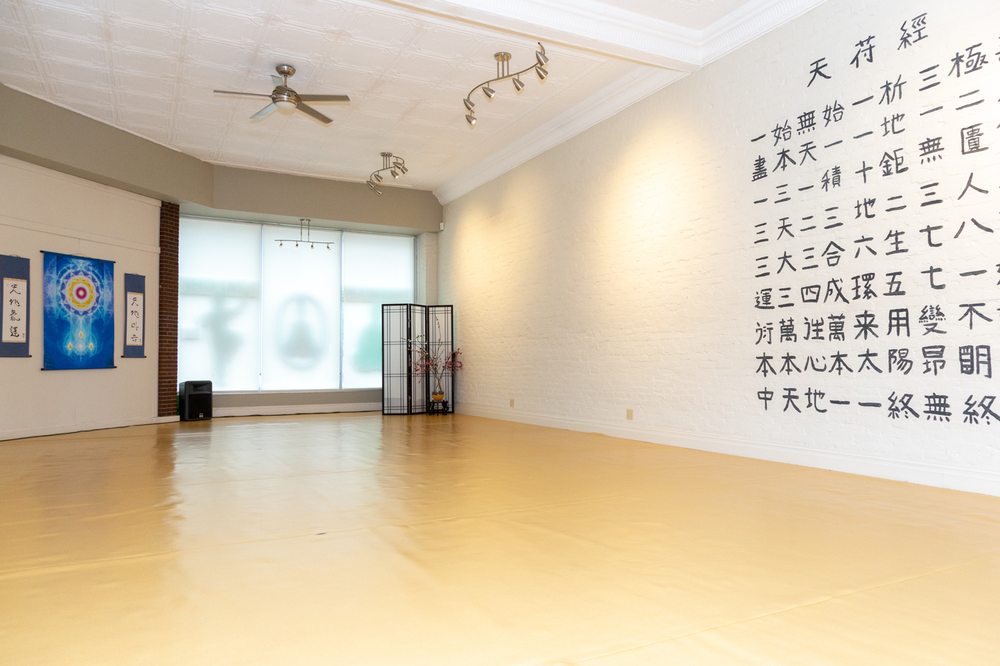 天苻經
一始無始一析三極
盡本天一一地一二
一三一積十鉅無匱
三天二三地二三人
三大三合六生七八
運三四成環五七一
衍萬往萬来用變不
本本心本太陽昂明
中天地一一終無終
天地氣運
天地